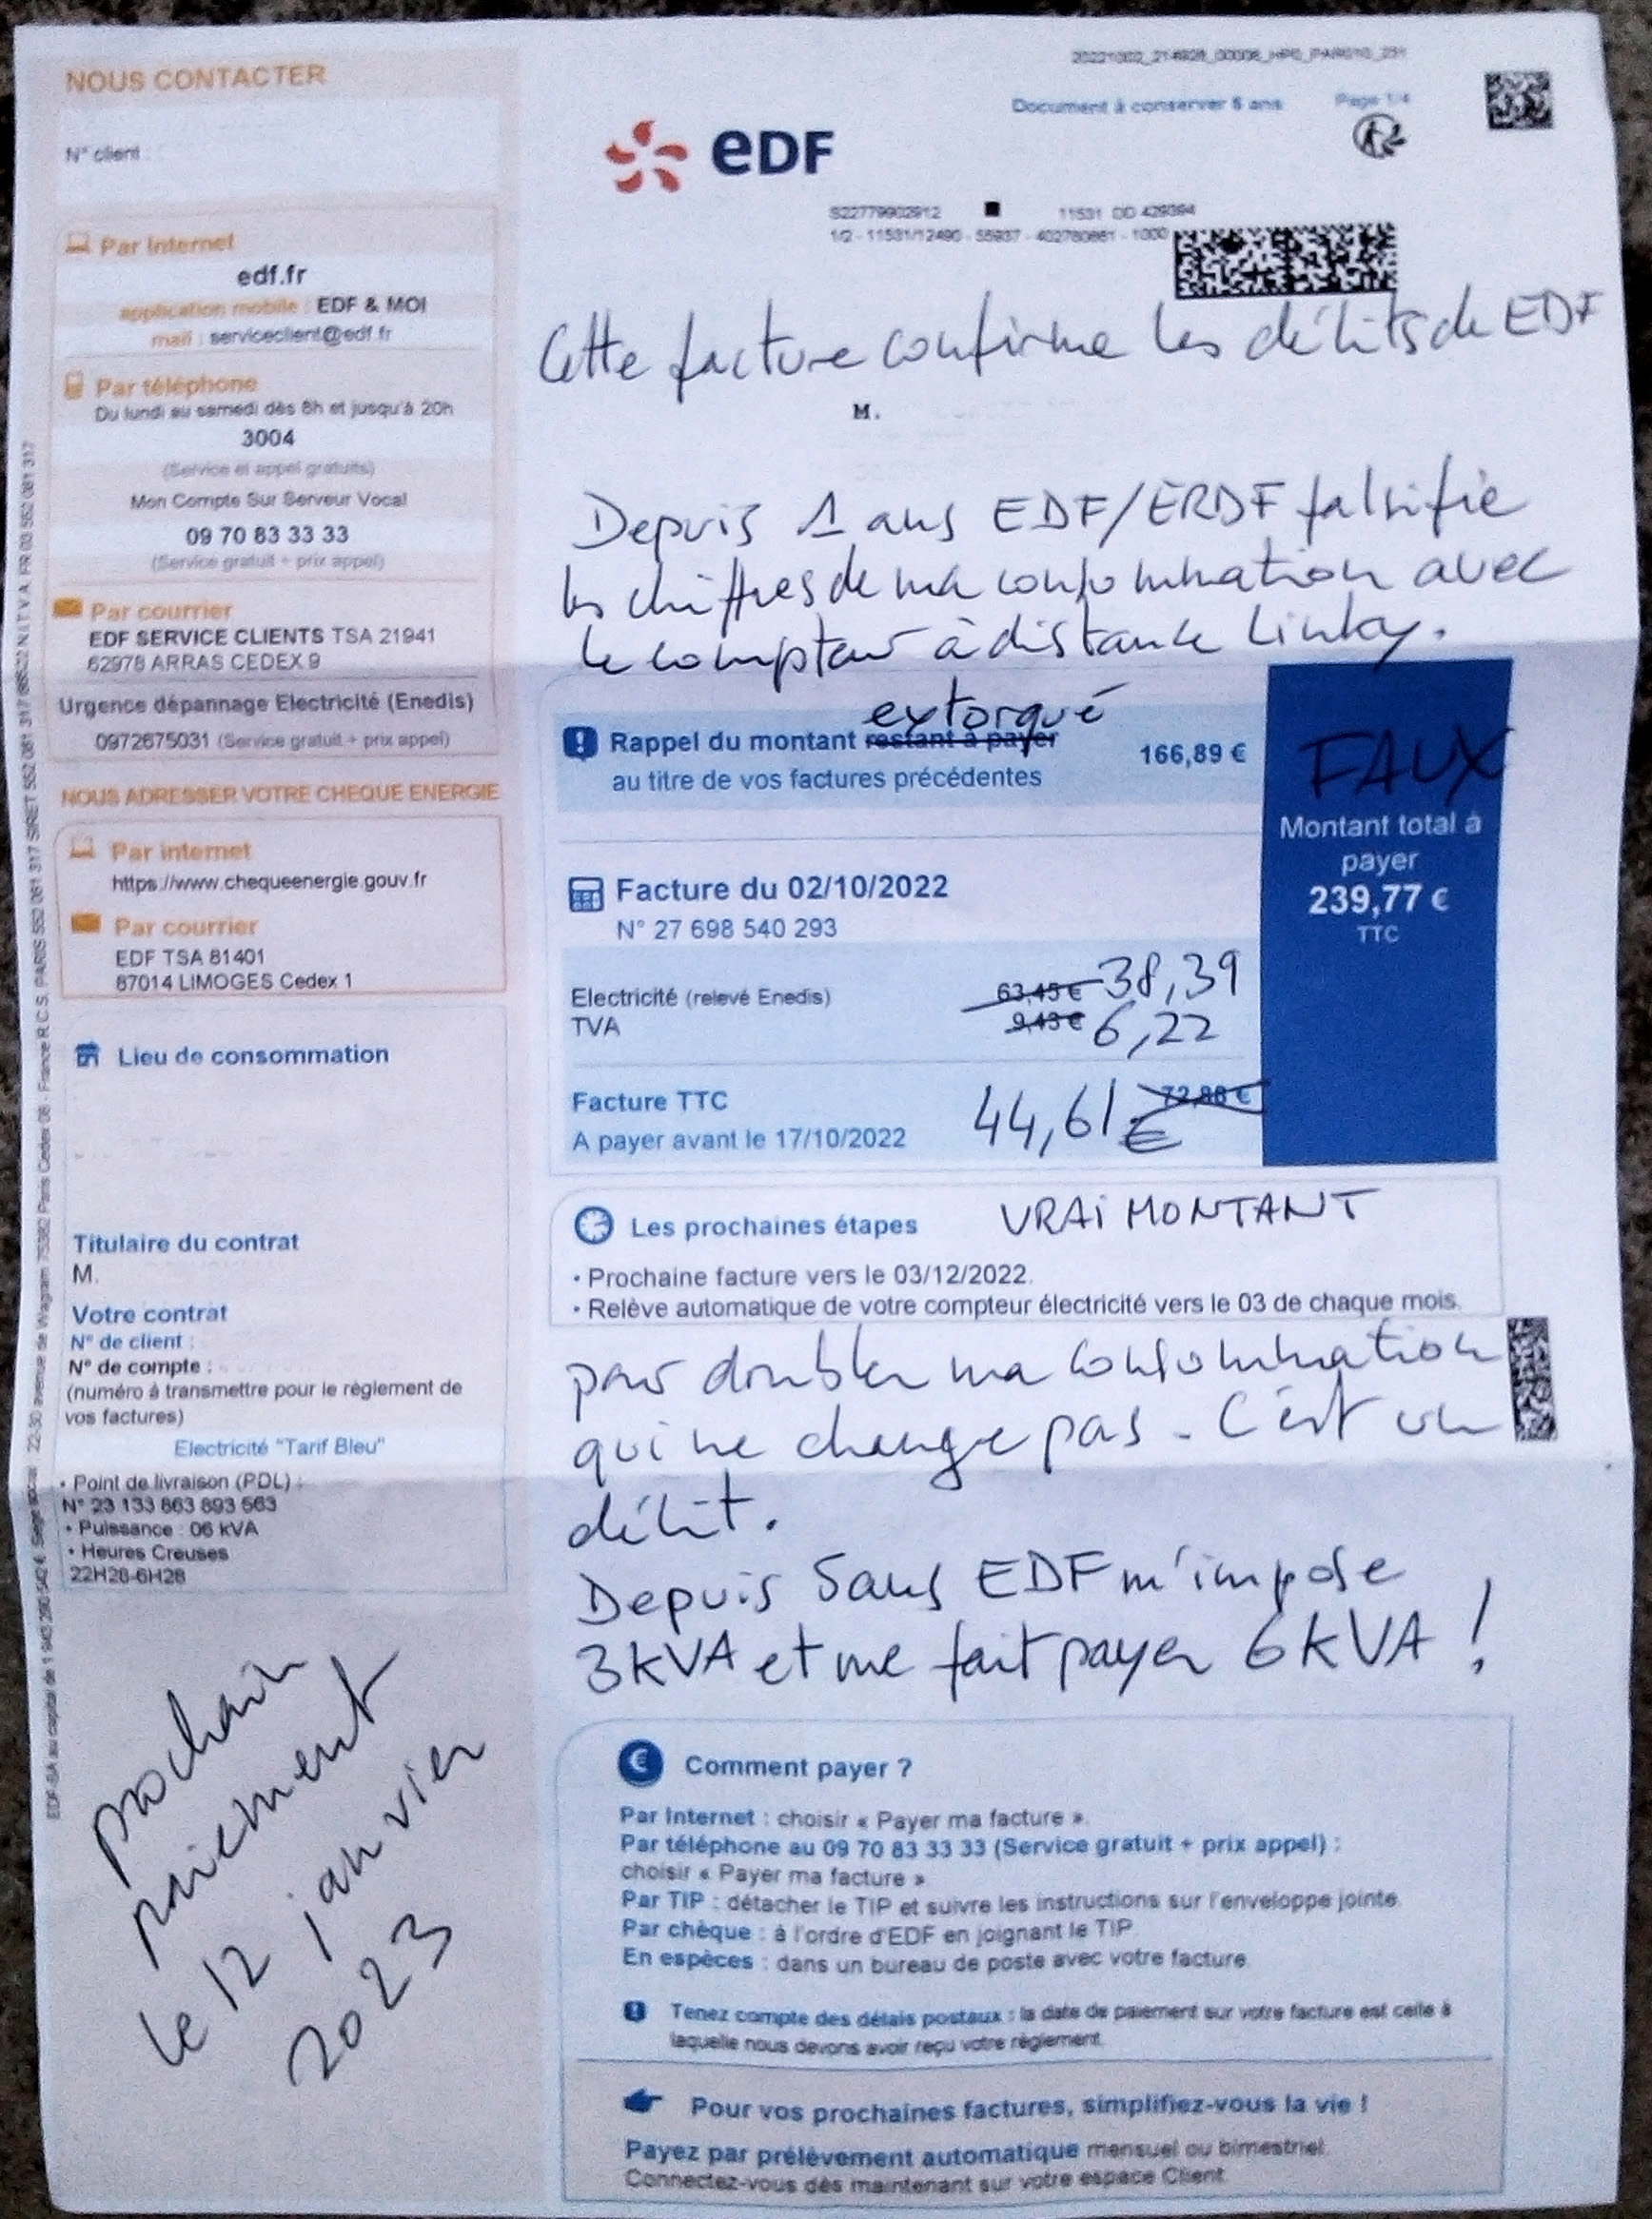 NOUS CONTACTER
N° client :
Par Internet
edf.fr
application mobile : EDF & MOI
mail : serviceclient@edf.fr
Par téléphone
Du lundi au samedi dès 8h et jusqu'à 20h
3004
(Service et appel gratuits)
Mon Compte Sur Serveur Vocal
09 70 83 33 33
(Service gratuit + prix appel)
Par courrier
EDF SERVICE CLIENTS TSA 21941
62978 ARRAS CEDEX 9
Urgence dépannage Electricité (Enedis)
0972675031 (Service gratuit + prix appel)
NOUS ADRESSER VOTRE CHEQUE ENERGIE
Par internet
https://www.chequeenergie.gouv.fr
Par courrier
EDF TSA 81401
87014 LIMOGES Cedex 1
Lieu de consommation
Titulaire du contrat
M.
Votre contrat
N° de client :
N° de compte :
(numéro à transmettre pour le règlement de
vos factures)
Electricité "Tarif Bleu"
• Point de livraison (PDL) :
N° 23 133 863 893 563
• Puissance : 06 kVA
• Heures Creuses
22H28-6H28
prochain
paiement
le 12 janvier
2023
Document à conserver 5 ans
Page 1/4
edf
1/2 - 11531/12490 - 55937 - 402780661 - 1000
Cette facture confirme les délits de EDF
M.
Depuis 1 ans EDF/ERDF falsifie
les chiffres de ma consommation avec
le compteur à distance Linky.
extorqué
Rappel du montant restant à payer 166,89 €
au titre de vos factures précédentes
FAUX
Montant total à
payer
239,77 €
TTC
Facture du 02/10/2022
N° 27 698 540 293
Electricité (relevé Enedis) 63,45 € 38,39
TVA 9,43 € 6,22
Facture TTC 44,61 € 72,88 €
A payer avant le 17/10/2022
Les prochaines étapes VRAI MONTANT
• Prochaine facture vers le 03/12/2022.
• Relève automatique de votre compteur électricité vers le 03 de chaque mois.
pour doubler ma consommation
qui ne change pas. C'est un
délit.
Depuis 5 ans EDF m'impose
3 kVA et me fait payer 6 kVA !
Comment payer ?
Par Internet : choisir « Payer ma facture ».
Par téléphone au 09 70 83 33 33 (Service gratuit + prix appel) :
choisir « Payer ma facture »
Par TIP : détacher le TIP et suivre les instructions sur l'enveloppe jointe.
Par chèque : à l'ordre d'EDF en joignant le TIP.
En espèces : dans un bureau de poste avec votre facture.
Tenez compte des délais postaux : la date de paiement sur votre facture est celle à
laquelle nous devons avoir reçu votre règlement.
Pour vos prochaines factures, simplifiez-vous la vie !
Payez par prélèvement automatique mensuel ou bimestriel.
Connectez-vous dès maintenant sur votre espace Client.